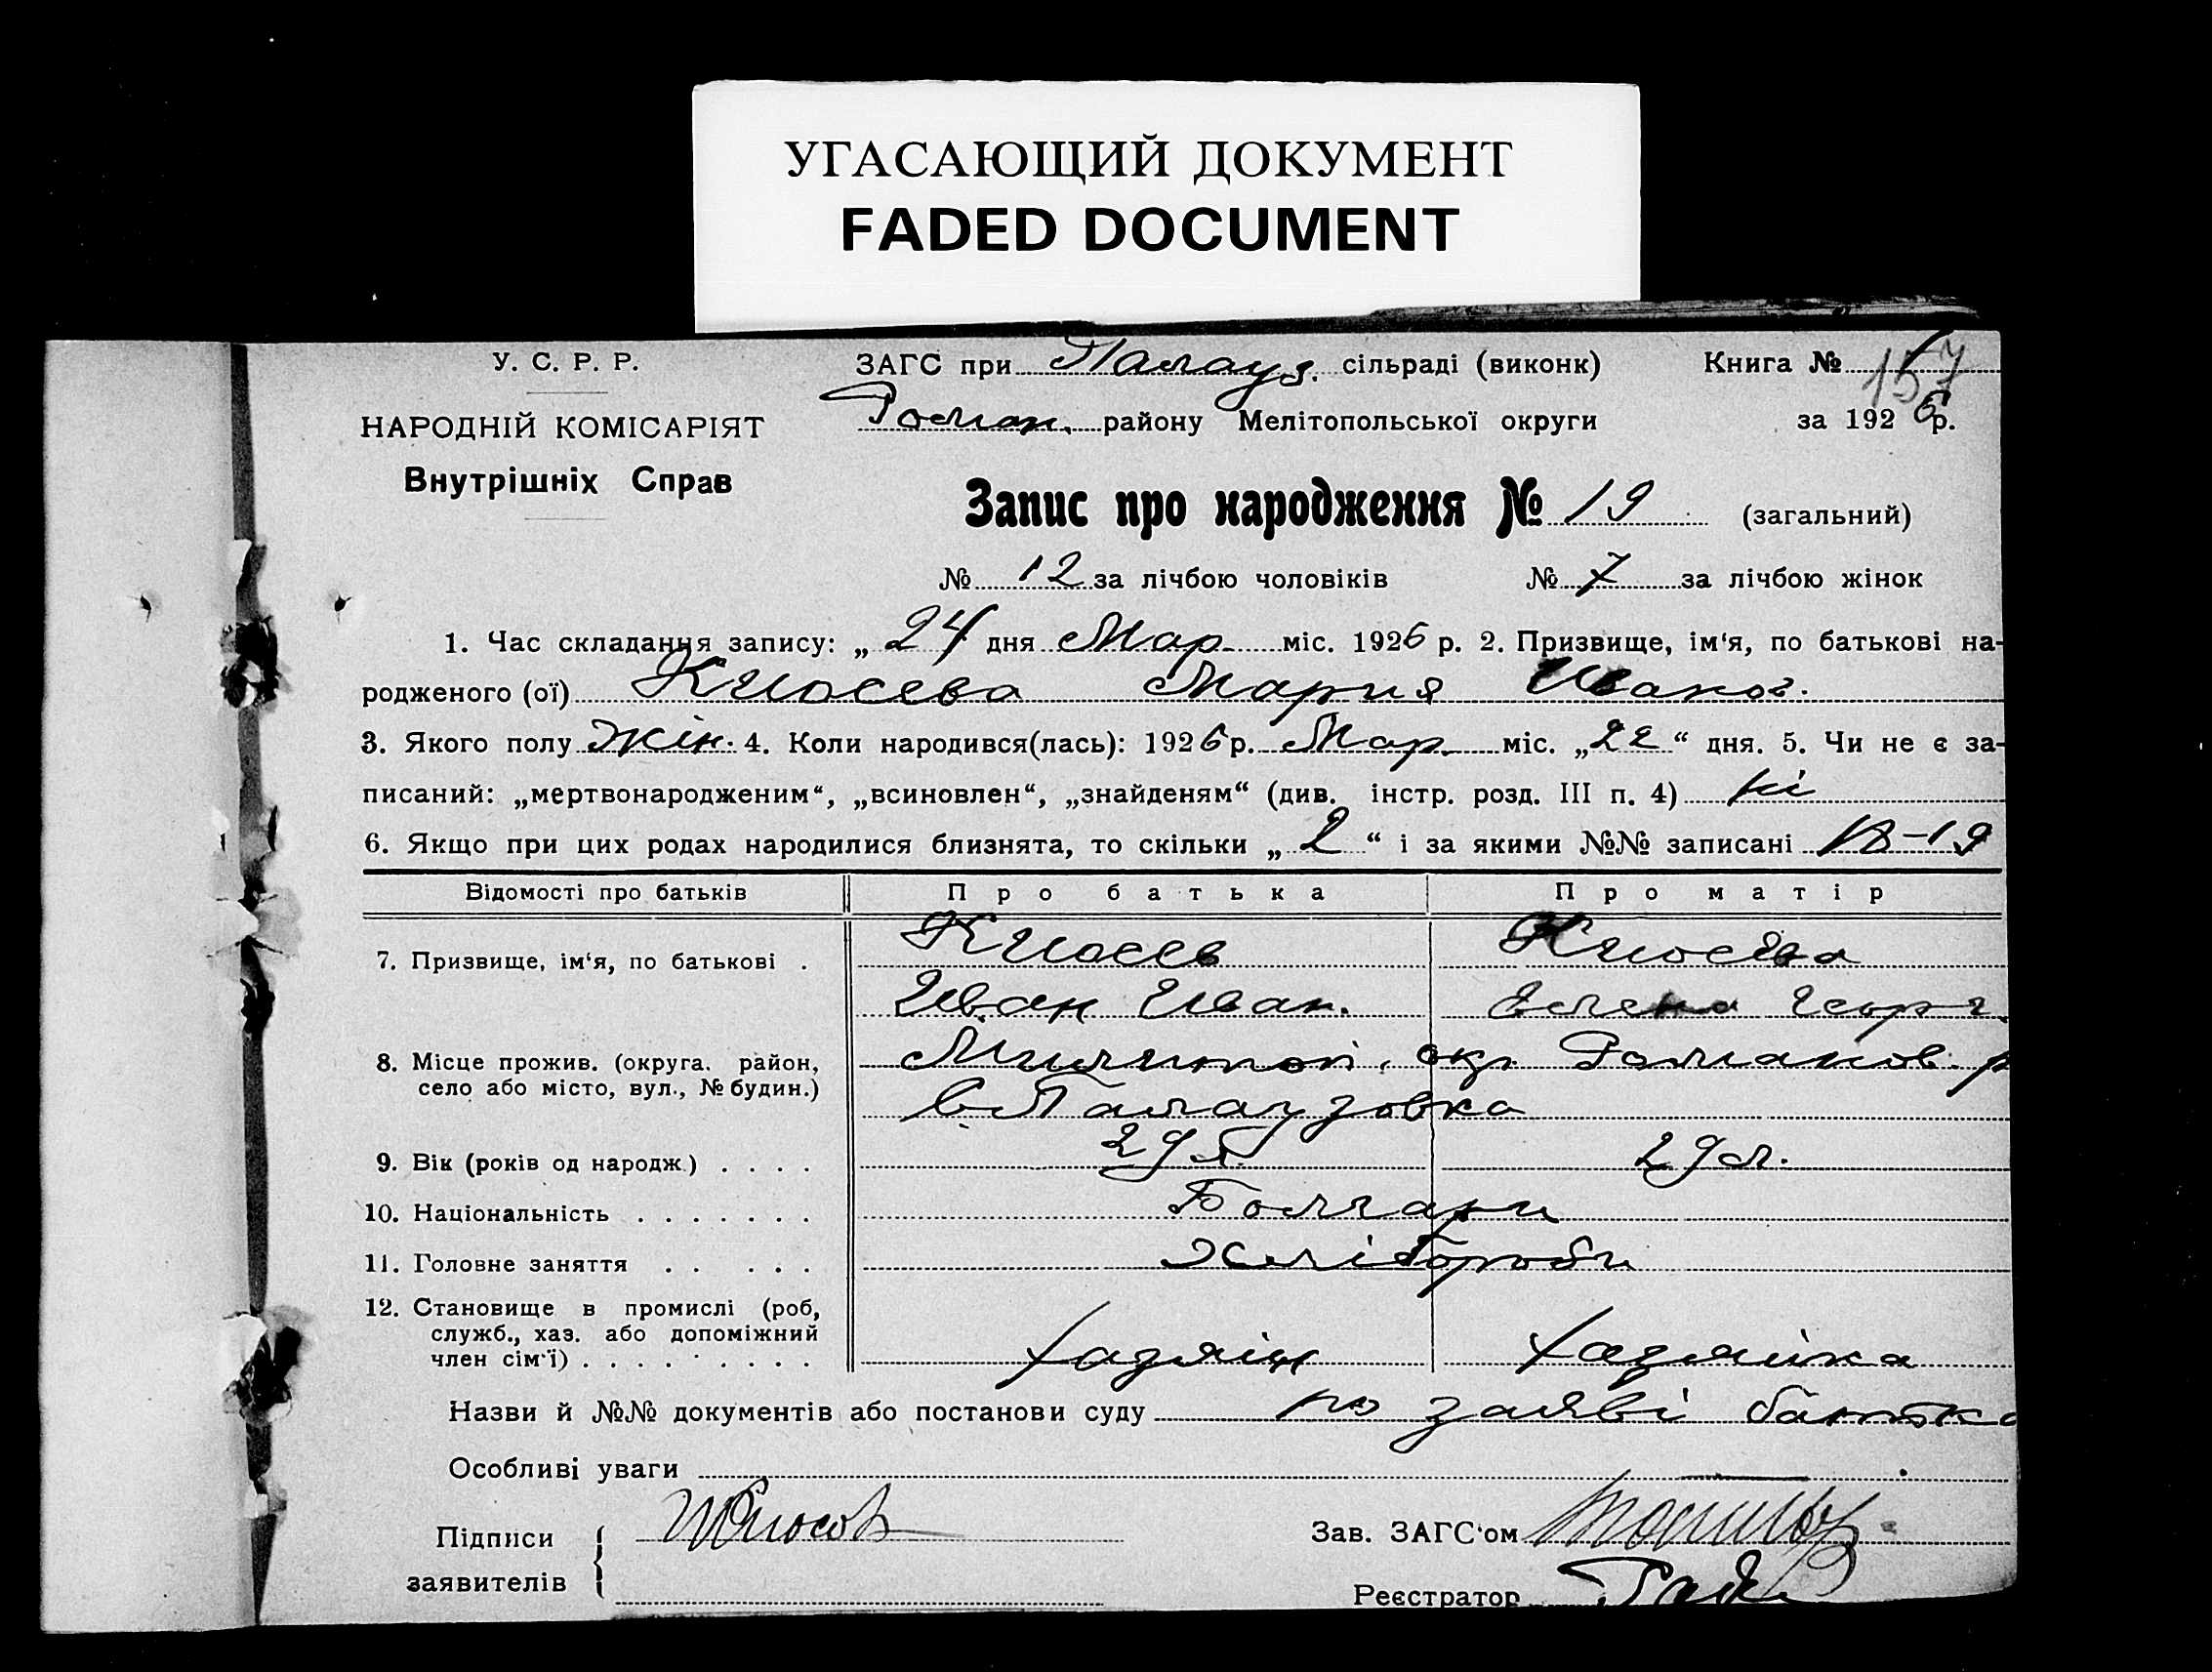 УГАСАЮЩИЙ ДОКУМЕНТ
FADED DOCUMENT
У. С. Р. Р.
НАРОДНІЙ КОМІСАРІЯТ
Внутрішніх Справ
ЗАГС при Палауз. сільраді (виконк) Книга № 157
Роман. району Мелітопольської округи за 1926 р.
Запис про народження № 19 (загальний)
№ 12 за лічбою чоловіків № 7 за лічбою жінок
1. Час складання запису: „ 24 дня Мар. міс. 1926 р. 2. Призвище, ім‘я, по батькові на-
родженого (ої) Кюсева Мария Иванов.
3. Якого полу Жін. 4. Коли народився(лась): 1926 р. Мар. міс. „22“ дня. 5. Чи не є за-
писаний: „мертвонародженим“, „всиновлен“, „знайденям“ (див. інстр. розд. III п. 4) ні
6. Якщо при цих родах народилися близнята, то скільки „ 2 “ і за якими №№ записані 18-19
Відомості про батьків Про батька Про матір
7. Призвище, ім‘я, по батькові . Кюсев Кюсева
Иван Иван. Елена Георг.
8. Місце прожив. (округа, район, село або місто, вул., № будин.) окр. Романов. р
в Палаузовка
9. Вік (років од народж.) . . . . 29 л. 29 л.
10. Національність . . . . . . . Болгари
11. Головне заняття . . . . . . Хлібороби
12. Становище в промислі (роб, служб., хаз. або допоміжний член сім‘ї) . . . . . . . . . хазяїн хазяйка
Назви й №№ документів або постанови суду по заяві батька
Особливі уваги
Підписи
заявителів
Зав. ЗАГС‘ом
Реєстратор